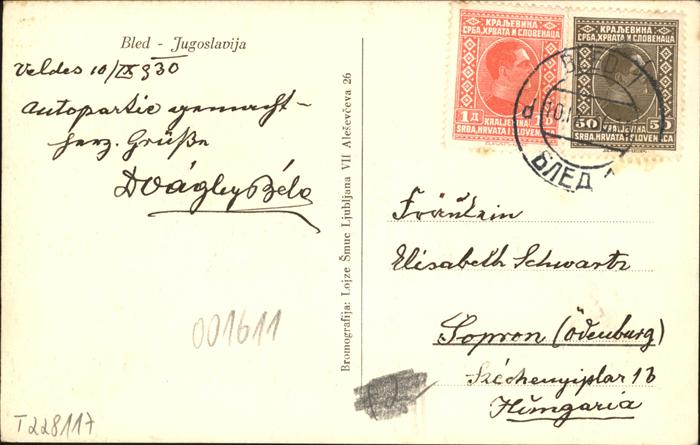 Bled - Jugoslavija
Veldes 10/IX 930
Autopartie gemacht -
herz. Grüße
Dr Vághy Béla
001611
T228117
Bromografija: Lojze Šmuc Ljubljana VII Aleševčeva 26
КРАЉЕВИНА
СРБА, ХРВАТА И СЛОВЕНАЦА
1 Д
1 D
KRALJEVINA
SRBA, HRVATA I SLOVENACA
КРАЉЕВИНА
СРБА, ХРВАТА И СЛОВЕНАЦА
50 50
KRALJEVINA
SRBA, HRVATA I SLOVENACA
BLED
d
БЛЕД
Fräulein
Elisabeth Schwartz
Sopron (Ödenburg)
Széchenyiplatz 13
Hungaria